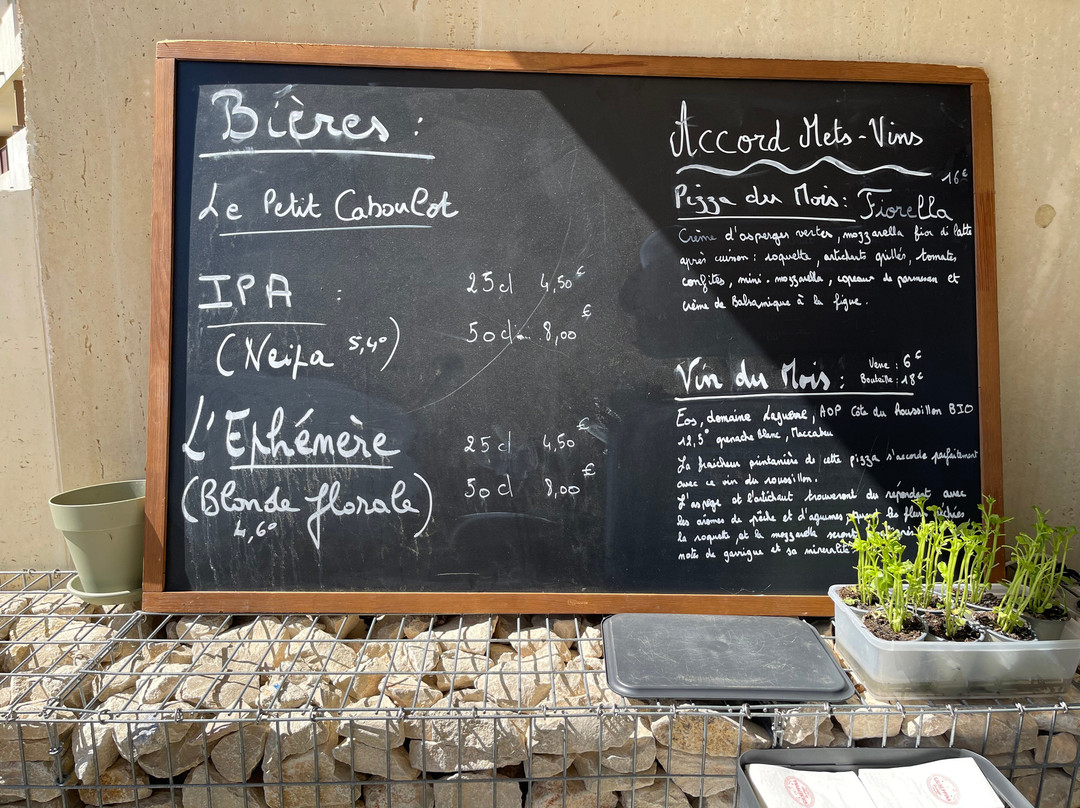 Bières :
Le Petit Caboulot
IPA :
25cl 4,50€
(Neipa 5,4°)
50cl 8,00€
L'Ephémère
25cl 4,50€
(Blonde florale)
50cl 8,00€
4,6°
Accord Mets-Vins
16€
Pizza du Mois : Fiorella
Crème d'asperges vertes, mozzarella fior di latte
après cuisson : roquette, artichauts grillés, tomates
confites, mini-mozzarella, copeaux de parmesan et
crème de Balsamique à la figue.
Vin du Mois :
Verre : 6€
Bouteille : 18€
Eos, domaine Laguerre, AOP Côte du Roussillon BIO
12,5° grenache blanc, Maccabeu
La fraicheur printanière de cette pizza s'accorde parfaitement
avec ce vin du roussillon.
L'asperge et l'artichaut trouveront du répondant avec
les arômes de pêche et d'agrumes les
la roquette, et la mozzarella seront
notes de garrigue et sa minéralité